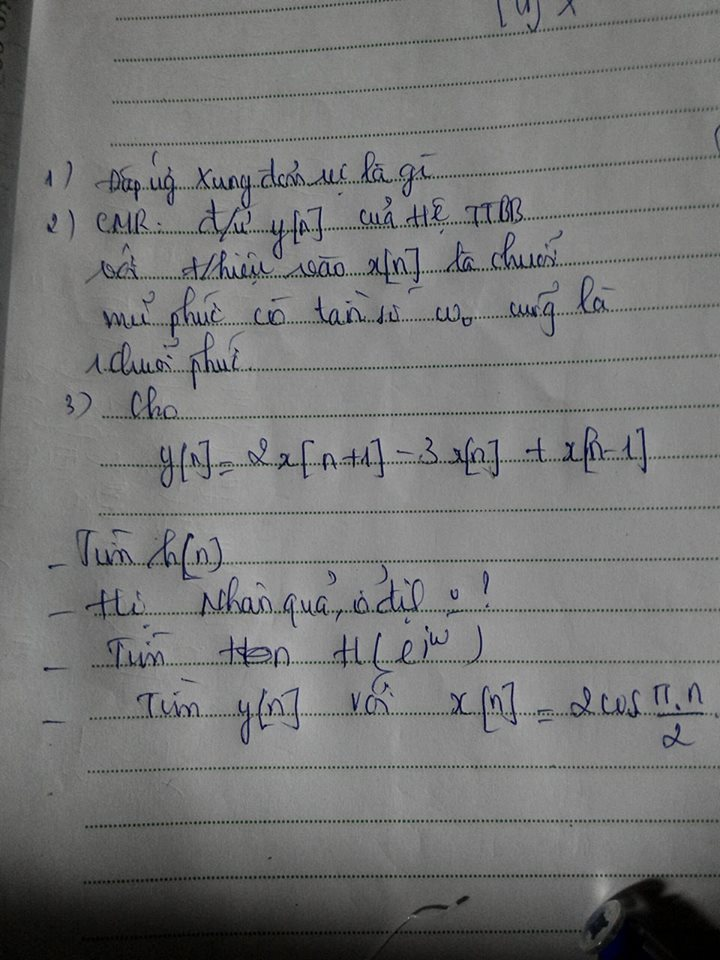 1) Đáp ứg xung đơn vị là gì
2) CMR: đ/ứ y[n] của Hệ TTBB
với t/hiệu vào x[n] là chuỗi
mũ phức có tần số ω₀ cũg là
1 chuỗi phức.
3) Cho
y[n] = 2x[n+1] - 3x[n] + x[n-1]
- Tìm h[n]
- Hệ Nhân quả, ổ địh o?
- Tìm H(e^jω)
- Tìm y[n] với x[n] = 2cos π.n/2